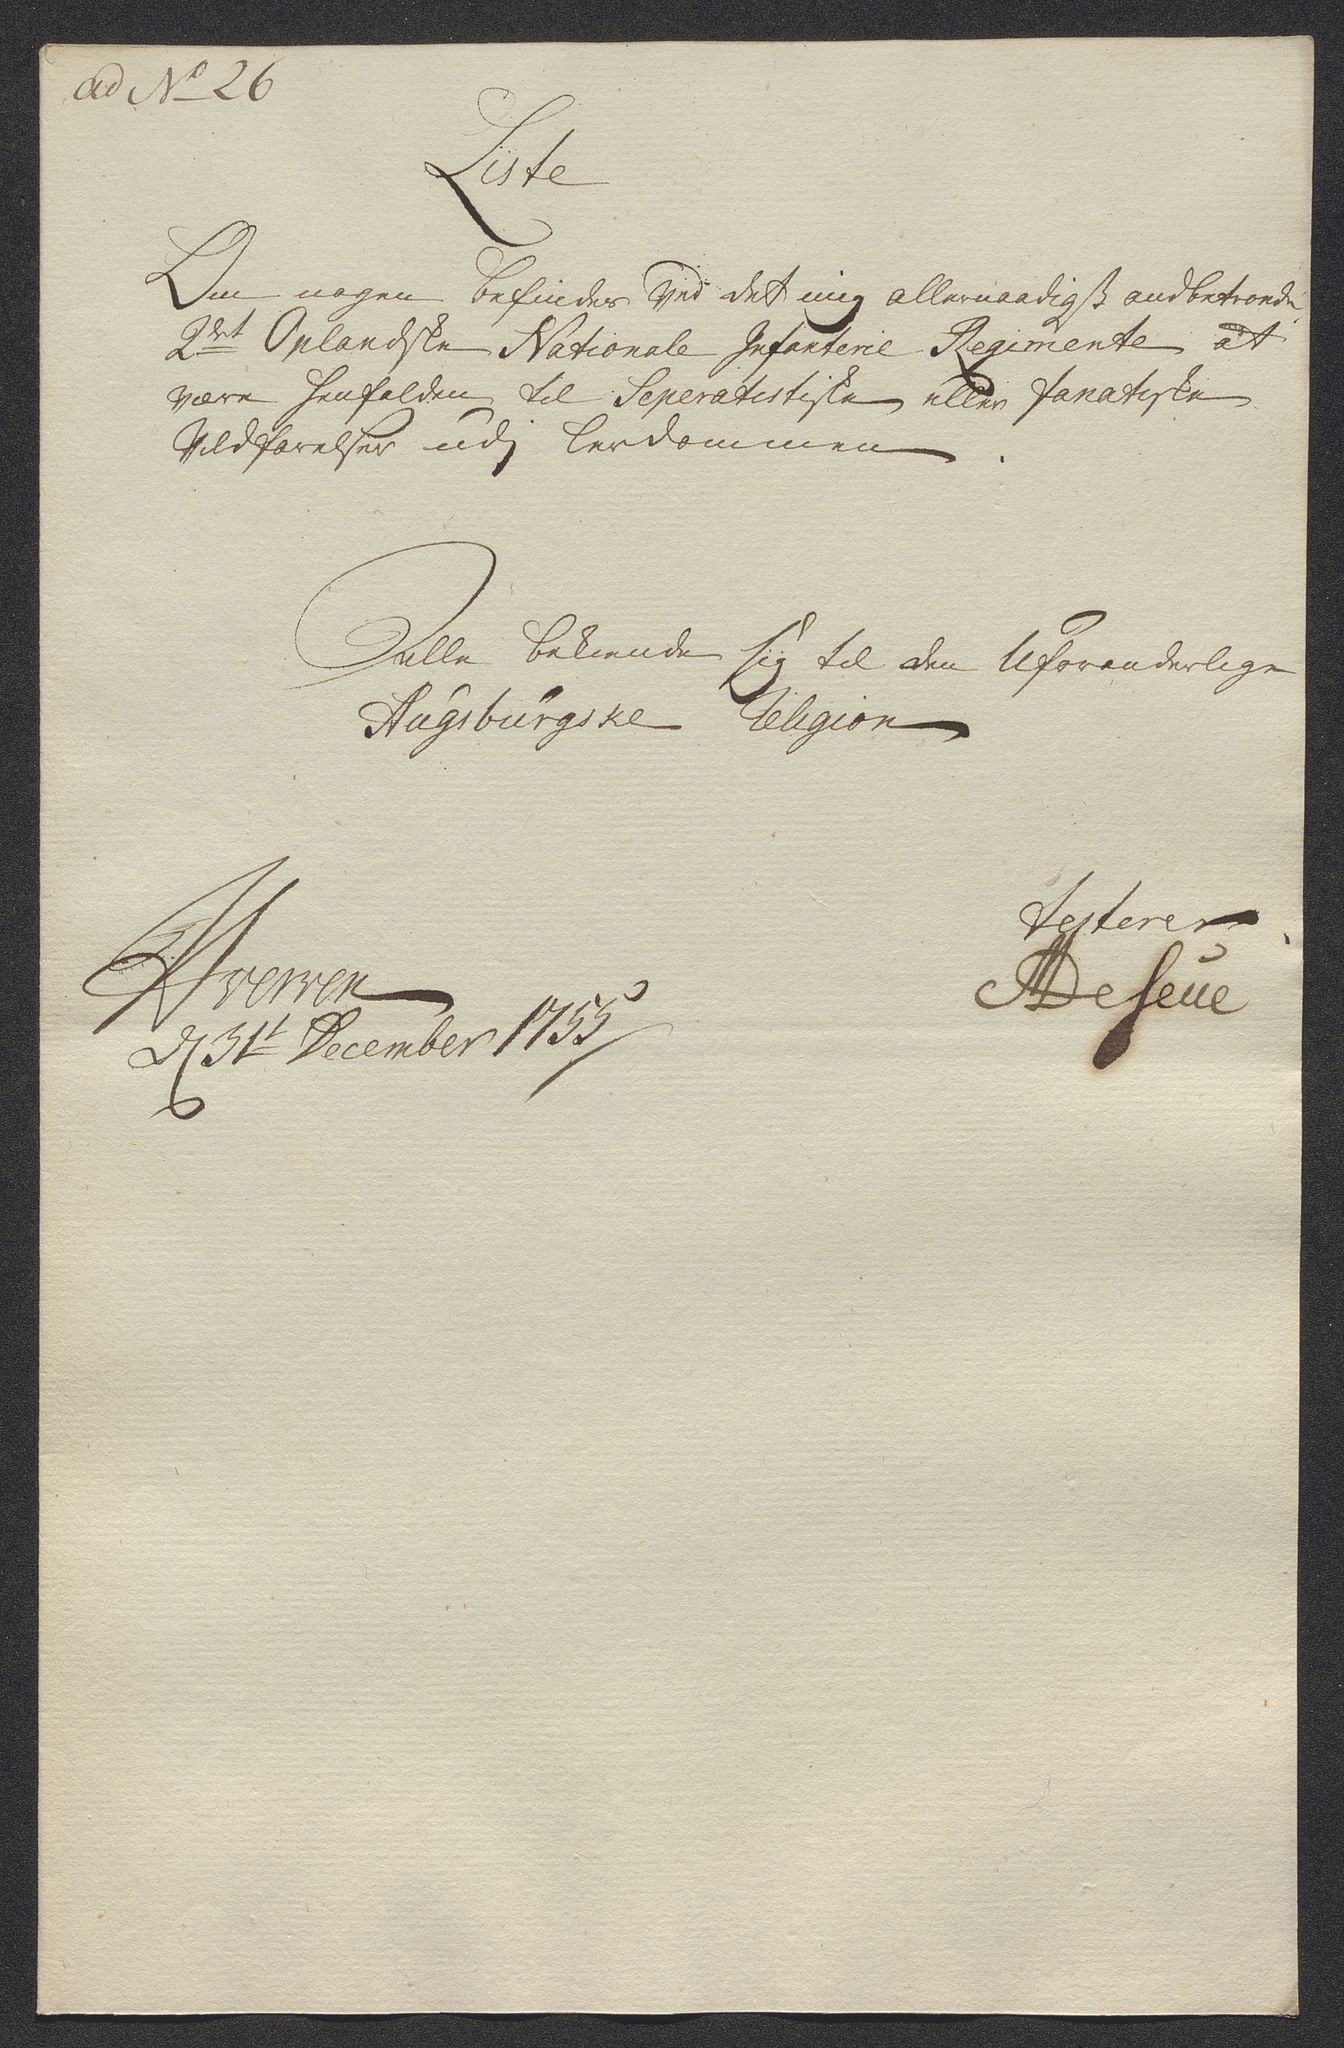 ad No 26
Liste
Om nogen befindes ved det mig allernaadigst andbetroede
2det Oplandske Nationale Infanterie Regimente at
være henfalden til Seperatistiske eller fanatiske
Vildfarelser udj Lerdommen.
Alle bekiende sig til den Uforanderlige
Augsburgske Religion
d 31t December 1755
testerer
De Seue